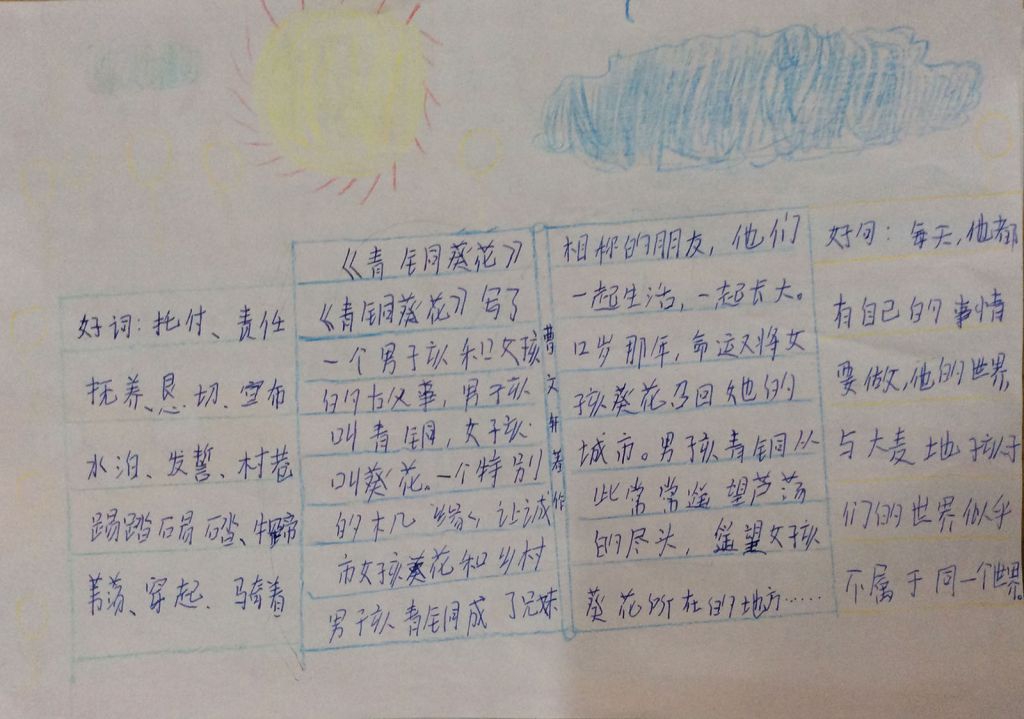 好词：托付、责任
抚养、恳切、宣布
水泊、发誓、村巷
踢踏、牛蹄
苇荡、穿起、骑着
《青铜葵花》
《青铜葵花》写了
一个男子孩和女孩
的故事，男子孩
叫青铜，女子孩
叫葵花。一个特别
的机缘，让城
市女孩葵花和乡村
男子孩青铜成了兄妹
曹文轩著作
相称的朋友，他们
一起生活，一起长大。
12岁那年，命运又将女
孩葵花召回她的
城市。男孩青铜从
此常常遥望芦荡
的尽头，遥望女孩
葵花所在的地方……
好句：每天，他都
有自己的事情
要做，他的世界，
与大麦地孩子
们的世界似乎
不属于同一个世界。